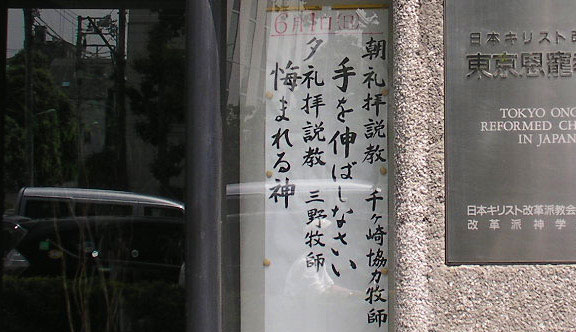 6月1日(日)
朝礼拝説教 千ヶ崎協力牧師
手を伸ばしなさい
夕礼拝説教 三野牧師
悔まれる神
日本キリスト改
東京恩寵教
TOKYO ONC
REFORMED CH
IN JAPAN
日本キリスト改革派教会
改革派神学